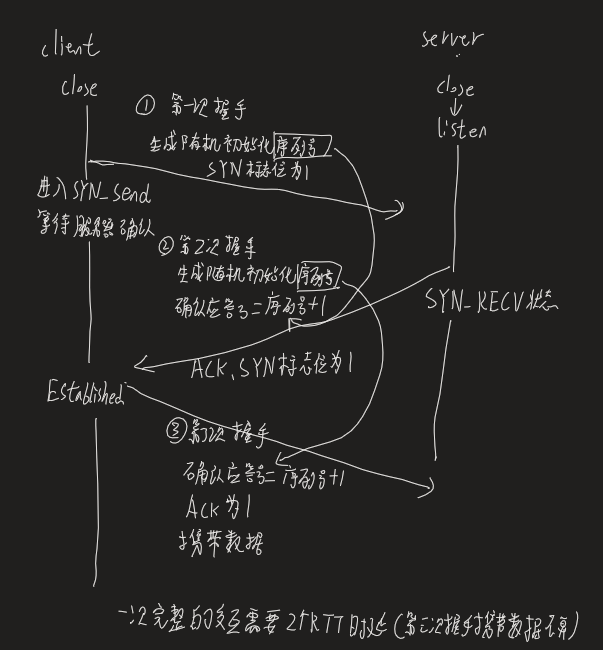 client
server
close
close
listen
① 第一次握手
生成随机初始化序列号
SYN标志位为1
进入SYN_Send
等待服务器确认
② 第2次握手
生成随机初始化序列号
确认应答号=序列号+1
SYN_RECV状态
ACK、SYN标志位为1
Established
③ 第3次握手
确认应答号=序列号+1
ACK为1
携带数据
一次完整的交互需要2个RTT时延(第三次握手携带数据不算)